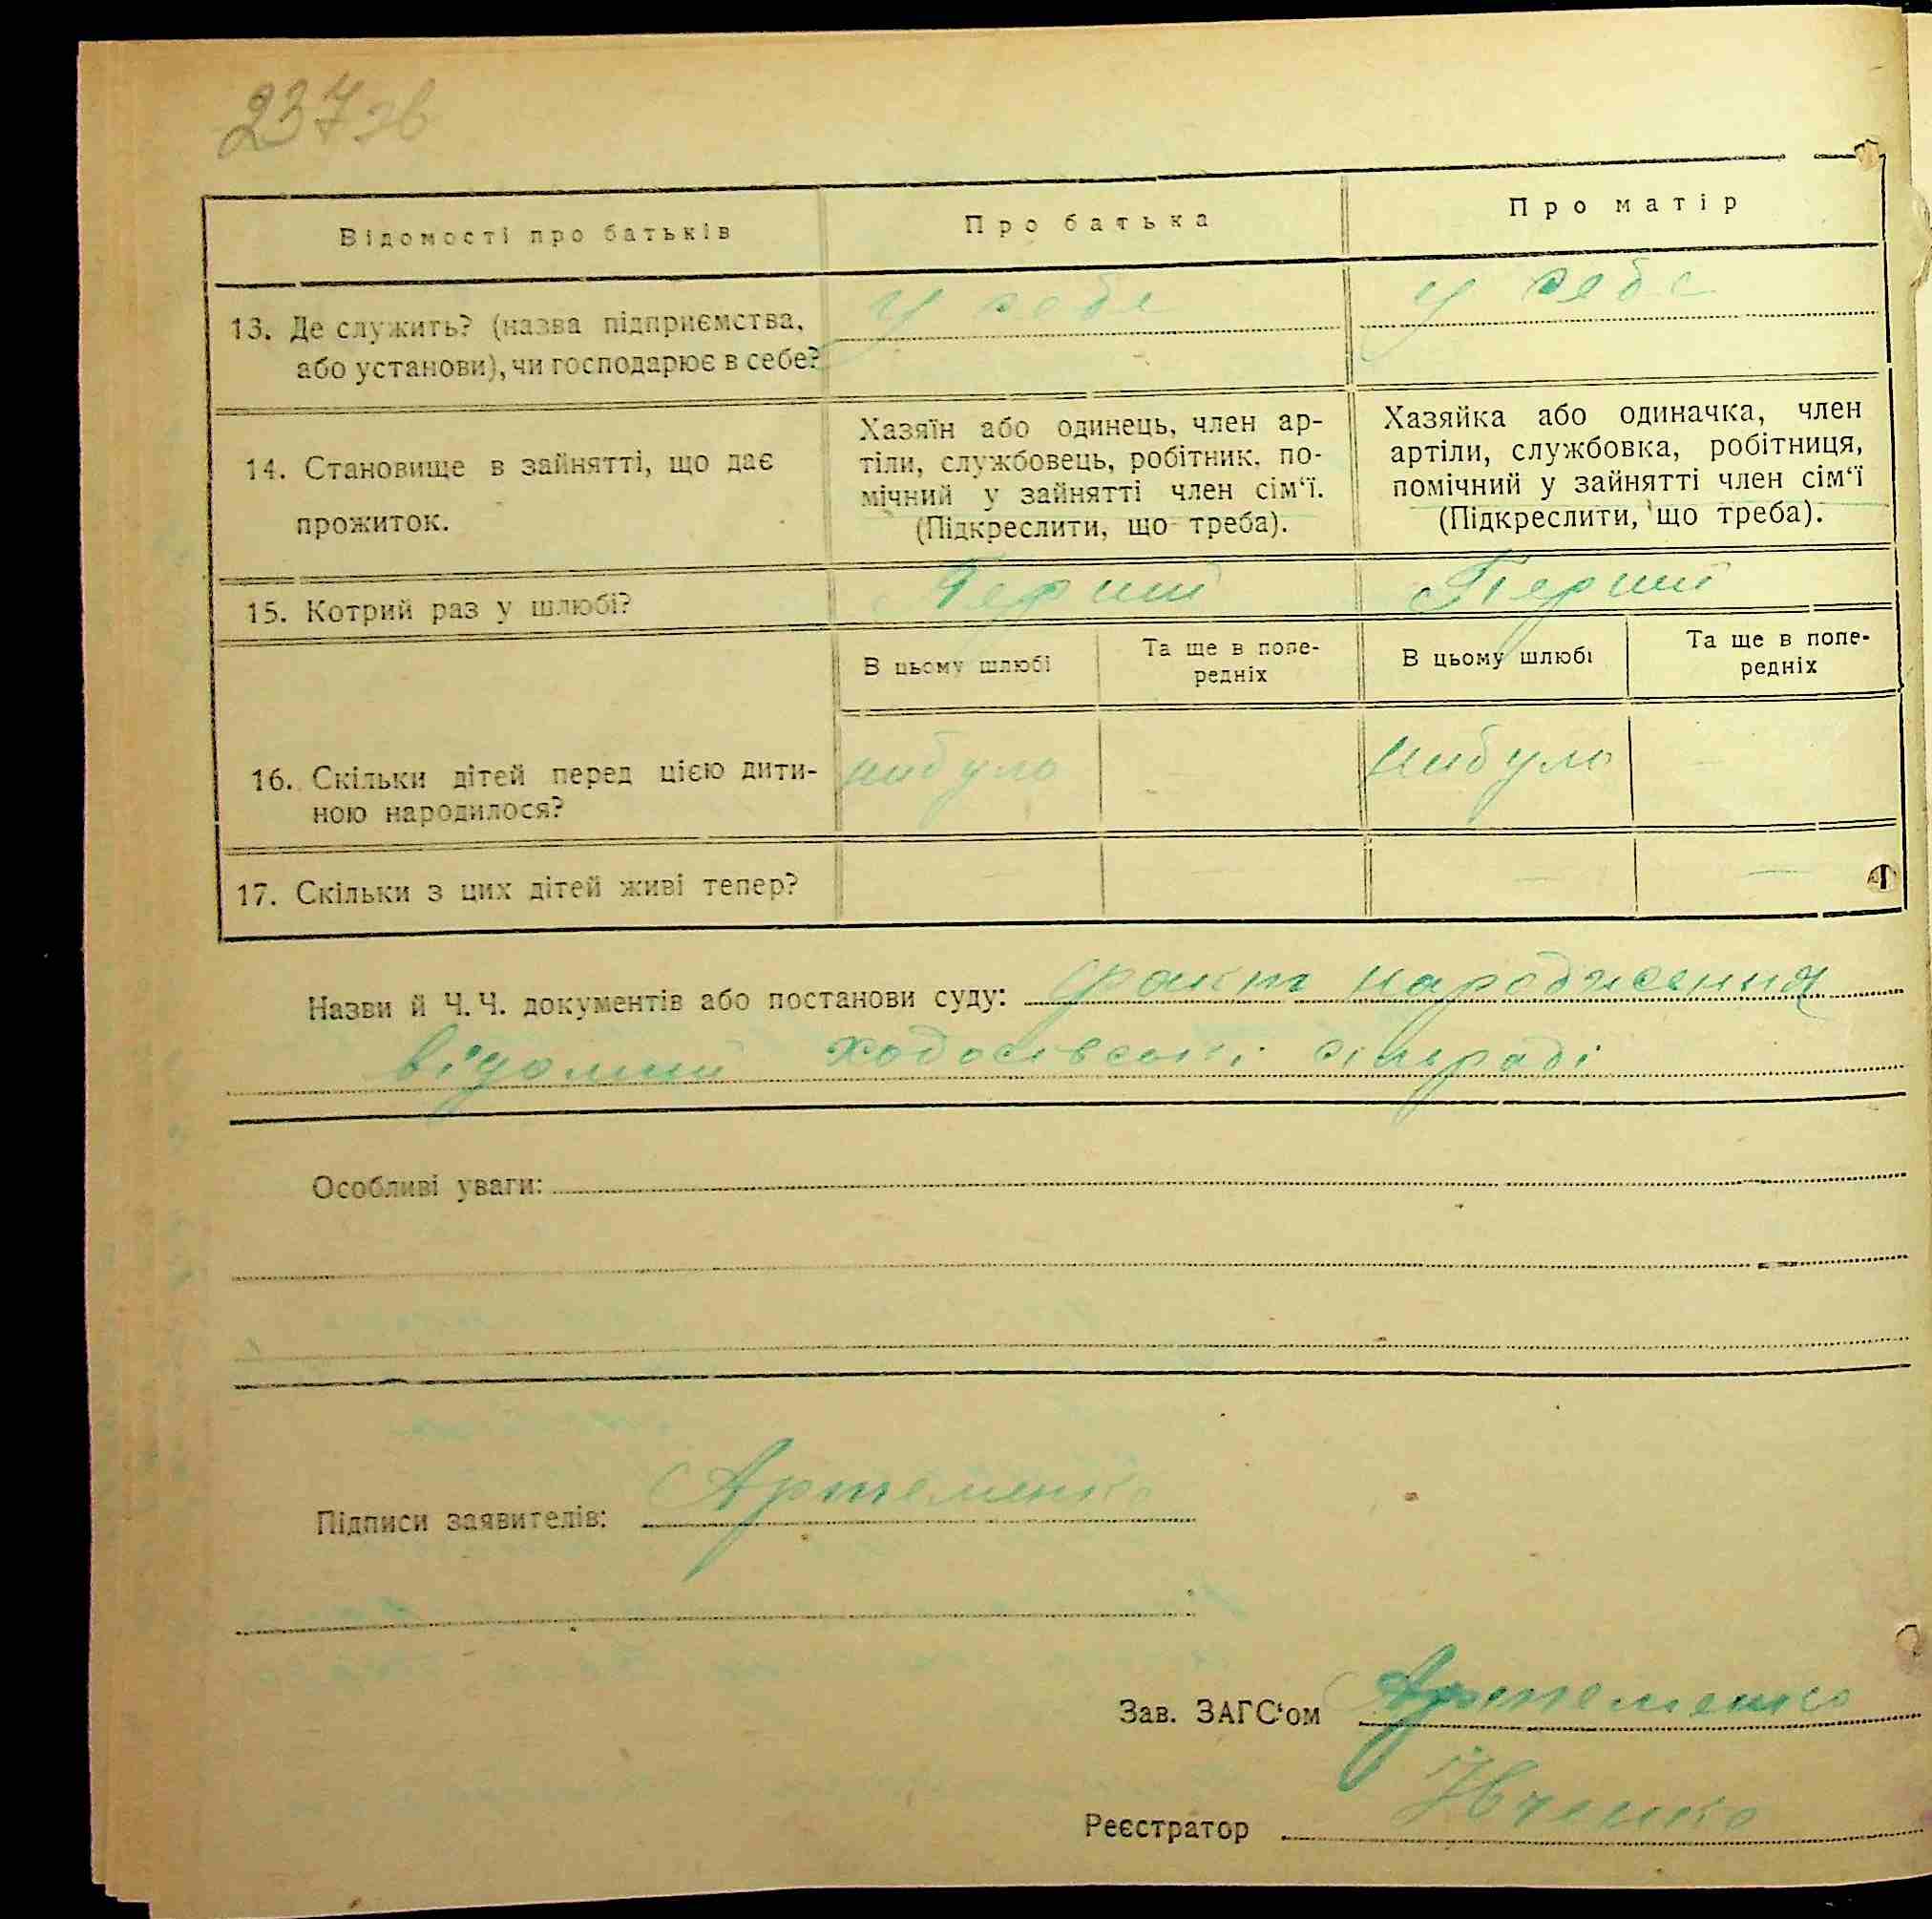 237зв
Відомості про батьків
Про батька
Про матір
13. Де служить? (назва підприємства,
або установи), чи господарює в себе?
у себе
у себе
14. Становище в зайнятті, що дає
прожиток.
Хазяїн або одинець, член ар-
тіли, службовець, робітник, по-
мічний у зайнятті член сім‘ї.
(Підкреслити, що треба).
Хазяйка або одиначка, член
артіли, службовка, робітниця,
помічний у зайнятті член сім‘ї
(Підкреслити, що треба).
15. Котрий раз у шлюбі?
Перший
Перший
В цьому шлюбі
Та ще в попе-
редніх
В цьому шлюбі
Та ще в попе-
редніх
16. Скільки дітей перед цією дити-
ною народилося?
нибуло
нибуло
—
17. Скільки з цих дітей живі тепер?
— — —
Назви й Ч. Ч. документів або постанови суду: факт народження
відомий ходосівській сільраді
Особливі уваги:
Підписи заявителів: Артеменко
Зав. ЗАГС‘ом Артеменко
Реєстратор Івченко